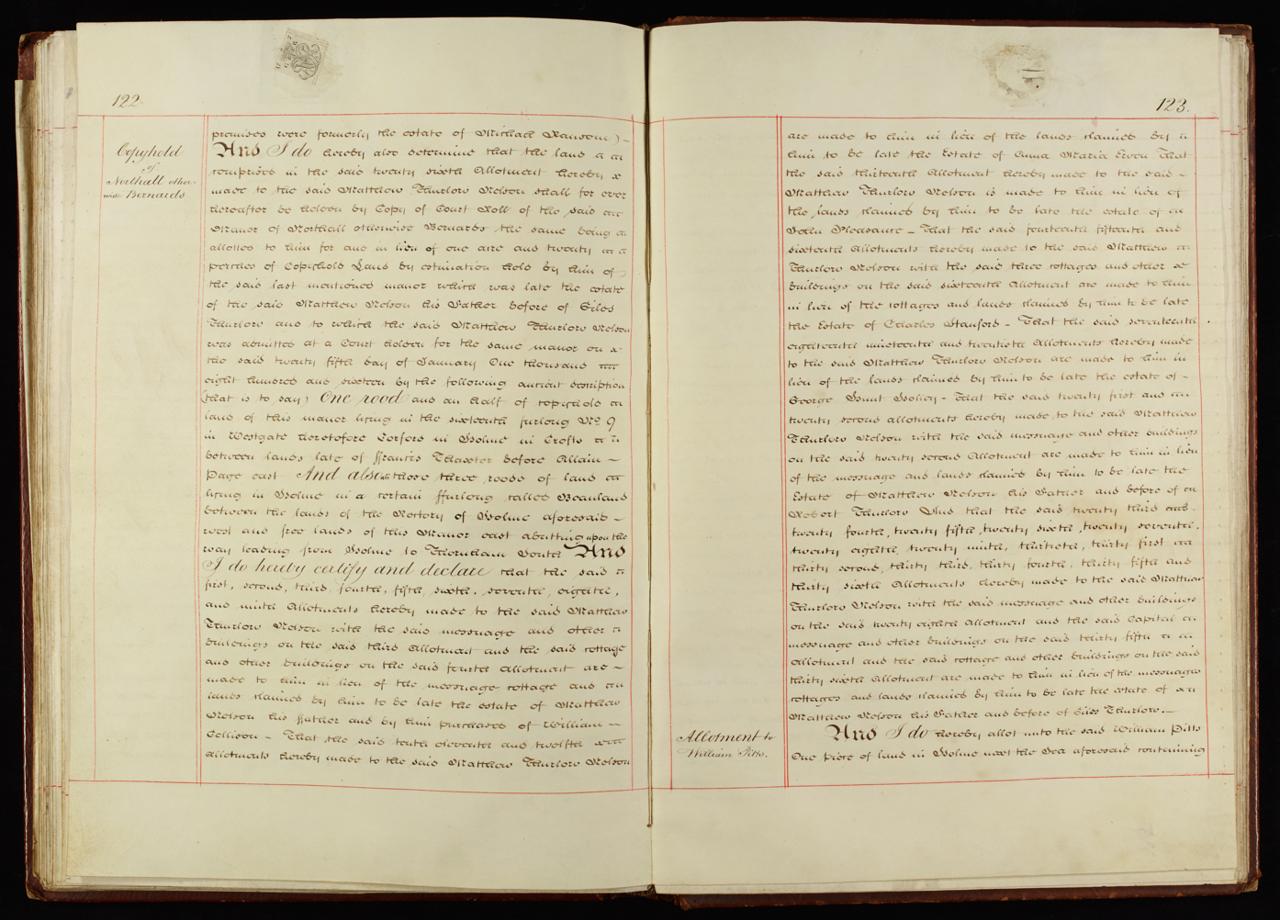 122
Copyhold
of
Northall other-
wise Bernards
premises were formerly the estate of Michael Ransom)
And I do hereby also determine that the land
comprised in the said twenty sixth Allotment hereby
made to the said Matthew Thurlow Nelson shall for ever
hereafter be holden by Copy of Court Roll of the said
Manor of Northall otherwise Bernards the same being
allotted to him for and in lieu of one acre and twenty
perches of Copyhold Land by estimation held by him of
the said last mentioned manor which was late the estate
of the said Matthew Nelson his Father before of Giles
Thurlow and to which the said Matthew Thurlow Nelson
was admitted at a Court holden for the same manor on
the said twenty fifth day of January One thousand
eight hundred and sixteen by the following ancient description
(that is to say) One rood and an half of copyhold
land of this manor lying in the sixteenth furlong No. 9
in Westgate heretofore Corford in Holme in Crofts
between lands late of Francis Thaxter before Allain
Page east And also those three roods of land
lying in Holme in a certain ffurlong called Beanland
between the lands of the Rectory of Holme aforesaid
west and free lands of this Manor east abutting upon the
way leading from Holme to Thornham South And
I do hereby certify and declare that the said
first, second, third, fourth, fifth, sixth, seventh, eighth,
and ninth Allotments hereby made to the said Matthew
Thurlow Nelson with the said messuage and other
buildings on the said third Allotment and the said cottage
and other buildings on the said fourth Allotment are
made to him in lieu of the messuage cottage and
lands claimed by him to be late the estate of Matthew
Nelson his ffather and by him purchased of William
Collison – That the said tenth eleventh and twelfth
allotments hereby made to the said Matthew Thurlow Nelson
123.
are made to him in lieu of the lands claimed by
him to be late the Estate of Anna Maria Even That
the said thirteenth Allotment hereby made to the said
Matthew Thurlow Nelson is made to him in lieu of
the lands claimed by him to be late the estate of
John Pleasance – That the said fourteenth fifteenth and
sixteenth Allotments hereby made to the said Matthew
Thurlow Nelson with the said three cottages and other
buildings on the said sixteenth Allotment are made to him
in lieu of the cottages and lands claimed by him to be late
the Estate of Charles Stanford – That the said seventeenth
eighteenth nineteenth and twentieth Allotments hereby made
to the said Matthew Thurlow Nelson are made to him in
lieu of the lands claimed by him to be late the estate of
George Hunt Holley – That the said twenty first and
twenty second allotments hereby made to the said Matthew
Thurlow Nelson with the said messuage and other buildings
on the said twenty second Allotment are made to him in lieu
of the messuage and lands claimed by him to be late the
Estate of Matthew Nelson his Father and before of
Robert Thurlow And that the said twenty third
twenty fourth, twenty fifth, twenty sixth, twenty seventh,
twenty eighth, twenty ninth, thirtieth, thirty first
thirty second, thirty third, thirty fourth, thirty fifth and
thirty sixth Allotments hereby made to the said Matthew
Thurlow Nelson with the said messuage and other buildings
on the said twenty eighth Allotment and the said Capital
messuage and other buildings on the said thirty fifth
Allotment and the said cottage and other buildings on the said
thirty sixth Allotment are made to him in lieu of the messuages
cottages and lands claimed by him to be late the estate of
Matthew Nelson his Father and before of Giles Thurlow.
Allotment to
William Pitts.
And I do hereby allot unto the said William Pitts
One piece of land in Holme next the Sea aforesaid containing